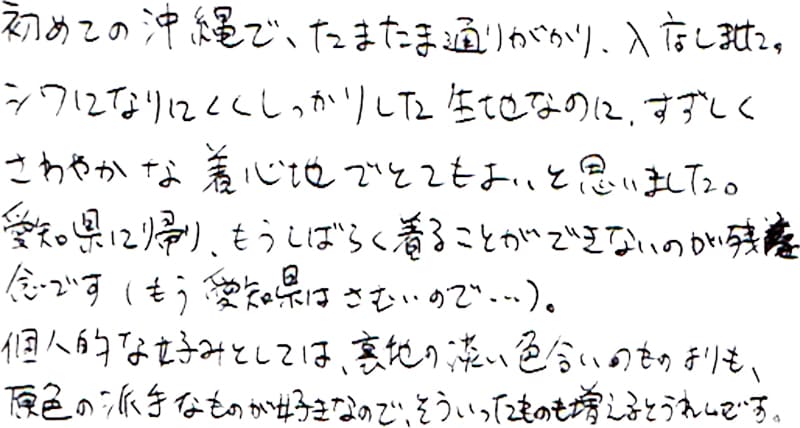 初めての沖縄で、たまたま通りがかり、入店しました。
シワになりにくくしっかりした生地なのに、すずしく
さわやかな着心地でとてもよいと思いました。
愛知県に帰り、もうしばらく着ることができないのが残
念です(もう愛知県はさむいので…)。
個人的な好みとしては、裏地の淡い色合いのものよりも、
原色の派手なものが好きなので、そういったものも増えるとうれしいです。